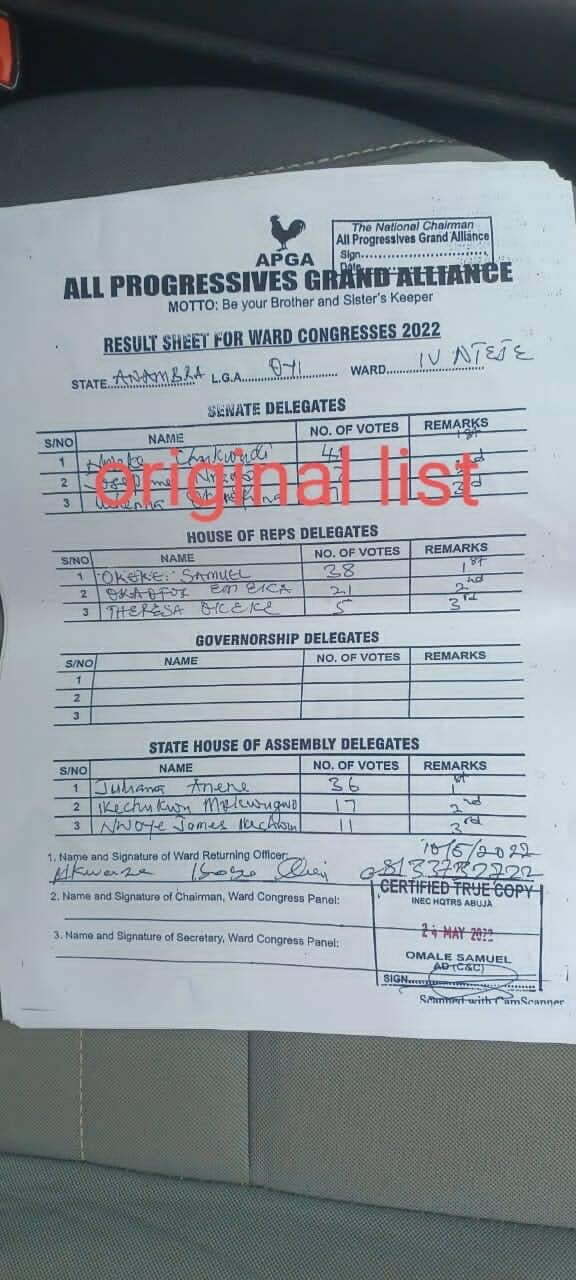 APGA
The National Chairman
All Progressives Grand Alliance
Sign
Date
ALL PROGRESSIVES GRAND ALLIANCE
MOTTO: Be your Brother and Sister's Keeper
RESULT SHEET FOR WARD CONGRESSES 2022
STATE. ANAMBRA L.G.A. OYI WARD. IV NTEJE
SENATE DELEGATES
S/NO NAME NO. OF VOTES REMARKS
1 1st
2
3 3rd
original list
HOUSE OF REPS DELEGATES
S/NO NAME NO. OF VOTES REMARKS
1 OKEKE SAMUEL 38 1st
2 OKAOFOR EMEKA 21 2nd
3 THERESA OKEKE 5 3rd
GOVERNORSHIP DELEGATES
S/NO NAME NO. OF VOTES REMARKS
1
2
3
STATE HOUSE OF ASSEMBLY DELEGATES
S/NO NAME NO. OF VOTES REMARKS
1 Juliana Anene 36 1st
2 Ikechukwu 17 2nd
3 NWOYE James 11 3rd
1. Name and Signature of Ward Returning Officer: 10/5/2022
2. Name and Signature of Chairman, Ward Congress Panel:
3. Name and Signature of Secretary, Ward Congress Panel:
CERTIFIED TRUE COPY
INEC HQTRS ABUJA
24 MAY 2022
OMALE SAMUEL
AD (C&C)
SIGN
Scanned with CamScanner